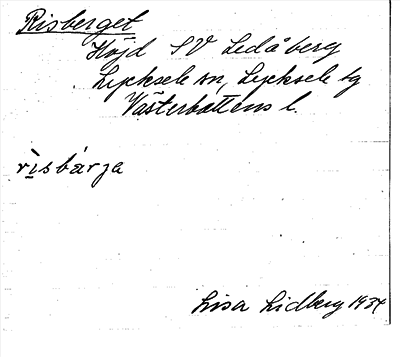 Risberget
Höjd SV Ledåberg
Lycksele sn, Lycksele tg
Västerbottens l.
rìsbárja
Lisa Lidberg 1934